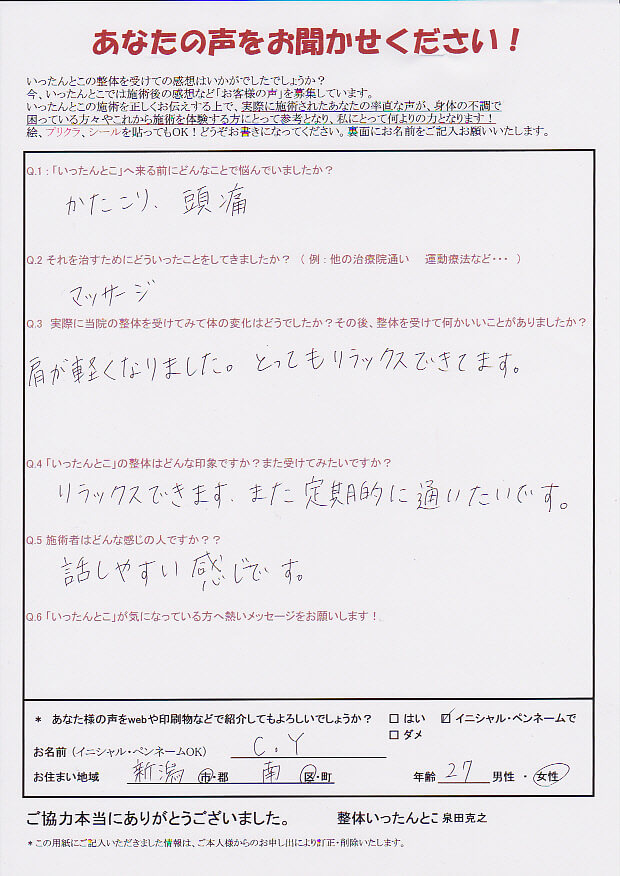 あなたの声をお聞かせください！
いったんとこの整体を受けての感想はいかがでしたでしょうか？
今、いったんとこでは施術後の感想など「お客様の声」を募集しています。
いったんとこの施術を正しくお伝えする上で、実際に施術されたあなたの率直な声が、身体の不調で
困っている方々やこれから施術を体験する方にとって参考となり、私にとって何よりの力となります！
絵、プリクラ、シールを貼ってもOK！どうぞお書きになってください。裏面にお名前をご記入お願いいたします。
Q.1：「いったんとこ」へ来る前にどんなことで悩んでいましたか？
かたこり、頭痛
Q.2 それを治すためにどういったことをしてきましたか？（例：他の治療院通い 運動療法など・・・）
マッサージ
Q.3 実際に当院の整体を受けてみて体の変化はどうでしたか？その後、整体を受けて何かいいことがありましたか？
肩が軽くなりました。とってもリラックスできてます。
Q.4 「いったんとこ」の整体はどんな印象ですか？また受けてみたいですか？
リラックスできます、また定期的に通いたいです。
Q.5 施術者はどんな感じの人ですか？？
話しやすい感じです。
Q.6 「いったんとこ」が気になっている方へ熱いメッセージをお願いします！
* あなた様の声をwebや印刷物などで紹介してもよろしいでしょうか？ □ はい ☑ イニシャル・ペンネームで
□ ダメ
お名前（イニシャル・ペンネームOK） C.Y
お住まい地域 新潟 市・郡 南 区・町 年齢 27 男性・女性
ご協力本当にありがとうございました。 整体いったんとこ 泉田克之
*この用紙にご記入いただきました情報は、ご本人様からのお申し出により訂正・削除いたします。